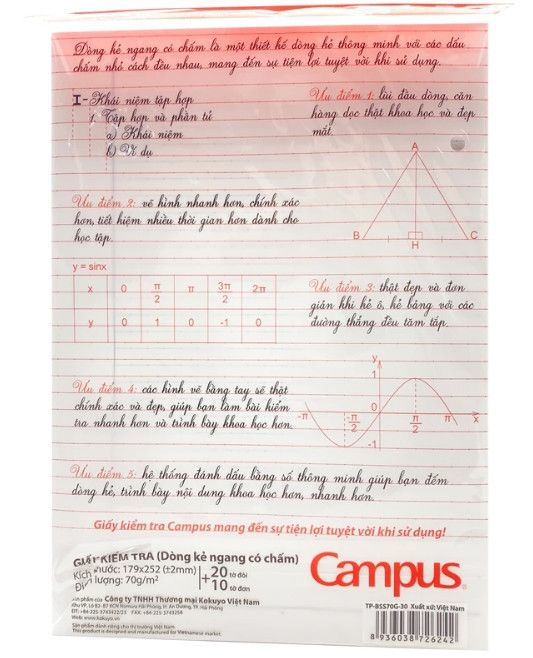 Dòng kẻ ngang có chấm là một thiết kế dòng kẻ thông minh với các dấu
chấm nhỏ cách đều nhau, mang đến sự tiện lợi tuyệt vời khi sử dụng.
I- Khái niệm tập hợp
1. Tập hợp và phần tử
a) Khái niệm
b) Ví dụ
Ưu điểm 1: lùi đầu dòng, căn
hàng dọc thật khoa học và đẹp
mắt.
A
B
H
C
Ưu điểm 2: vẽ hình nhanh hơn, chính xác
hơn, tiết kiệm nhiều thời gian hơn dành cho
học tập.
y = sinx
x 0 π/2 π 3π/2 2π
y 0 1 0 -1 0
Ưu điểm 3: thật đẹp và đơn
giản khi kẻ ô, kẻ bảng với các
đường thẳng đều tăm tắp.
Ưu điểm 4: các hình vẽ bằng tay sẽ thật
chính xác và đẹp, giúp bạn làm bài kiểm
tra nhanh hơn và trình bày khoa học hơn.
y
1
-π -π/2 0 π/2 π x
-1
Ưu điểm 5: hệ thống đánh dấu bằng số thông minh giúp bạn đếm
dòng kẻ, trình bày nội dung khoa học hơn, nhanh hơn.
Giấy kiểm tra Campus mang đến sự tiện lợi tuyệt vời khi sử dụng!
GIẤY KIỂM TRA (Dòng kẻ ngang có chấm)
Kích thước: 179x252 (±2mm)
Định lượng: 70g/m²
+20 tờ đôi
10 tờ đơn
Campus
Sản phẩm của Công ty TNHH Thương mại Kokuyo Việt Nam
Web: www.kokuyo.vn
Sản phẩm dành riêng cho thị trường Việt Nam
This product is designed and manufactured for Vietnamese market.
TP-BSS70G-30 Xuất xứ: Việt Nam
8 936038 726242